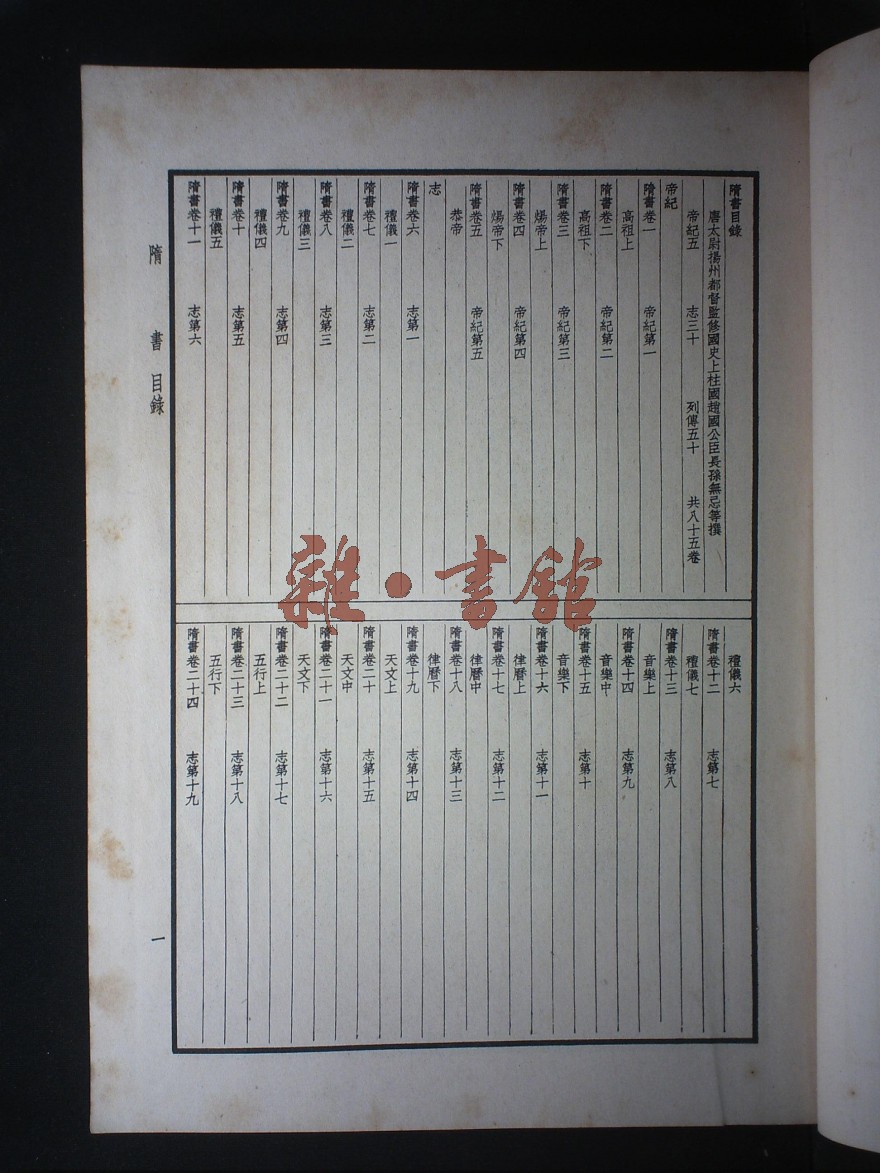 隋書目錄
唐太尉揚州都督監修國史上柱國趙國公臣長孫無忌等撰
帝紀五　志三十　列傳五十　共八十五卷
帝紀
隋書卷一　帝紀第一
高祖上
隋書卷二　帝紀第二
高祖下
隋書卷三　帝紀第三
煬帝上
隋書卷四　帝紀第四
煬帝下
隋書卷五　帝紀第五
恭帝
志
隋書卷六　志第一
禮儀一
隋書卷七　志第二
禮儀二
隋書卷八　志第三
禮儀三
隋書卷九　志第四
禮儀四
隋書卷十　志第五
禮儀五
隋書卷十一　志第六
禮儀六
隋書卷十二　志第七
禮儀七
隋書卷十三　志第八
音樂上
隋書卷十四　志第九
音樂中
隋書卷十五　志第十
音樂下
隋書卷十六　志第十一
律曆上
隋書卷十七　志第十二
律曆中
隋書卷十八　志第十三
律曆下
隋書卷十九　志第十四
天文上
隋書卷二十　志第十五
天文中
隋書卷二十一　志第十六
天文下
隋書卷二十二　志第十七
五行上
隋書卷二十三　志第十八
五行下
隋書卷二十四　志第十九
隋書　目錄
一
雜·書館